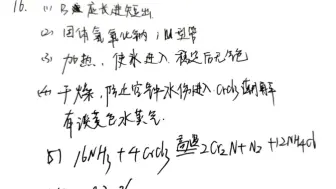 16. (1) B 延长进短出
(2) 固体氢氧化钠, U型管
(3) 加热, 使水进入, 稳定后无气包
(4) 干燥, 防止空气中水份进入CrCl₃潮解
有淡黄色水蒸气.
(5) 16NH₃+4CrCl₃ 高温 2Cr₂N+N₂+12NH₄Cl